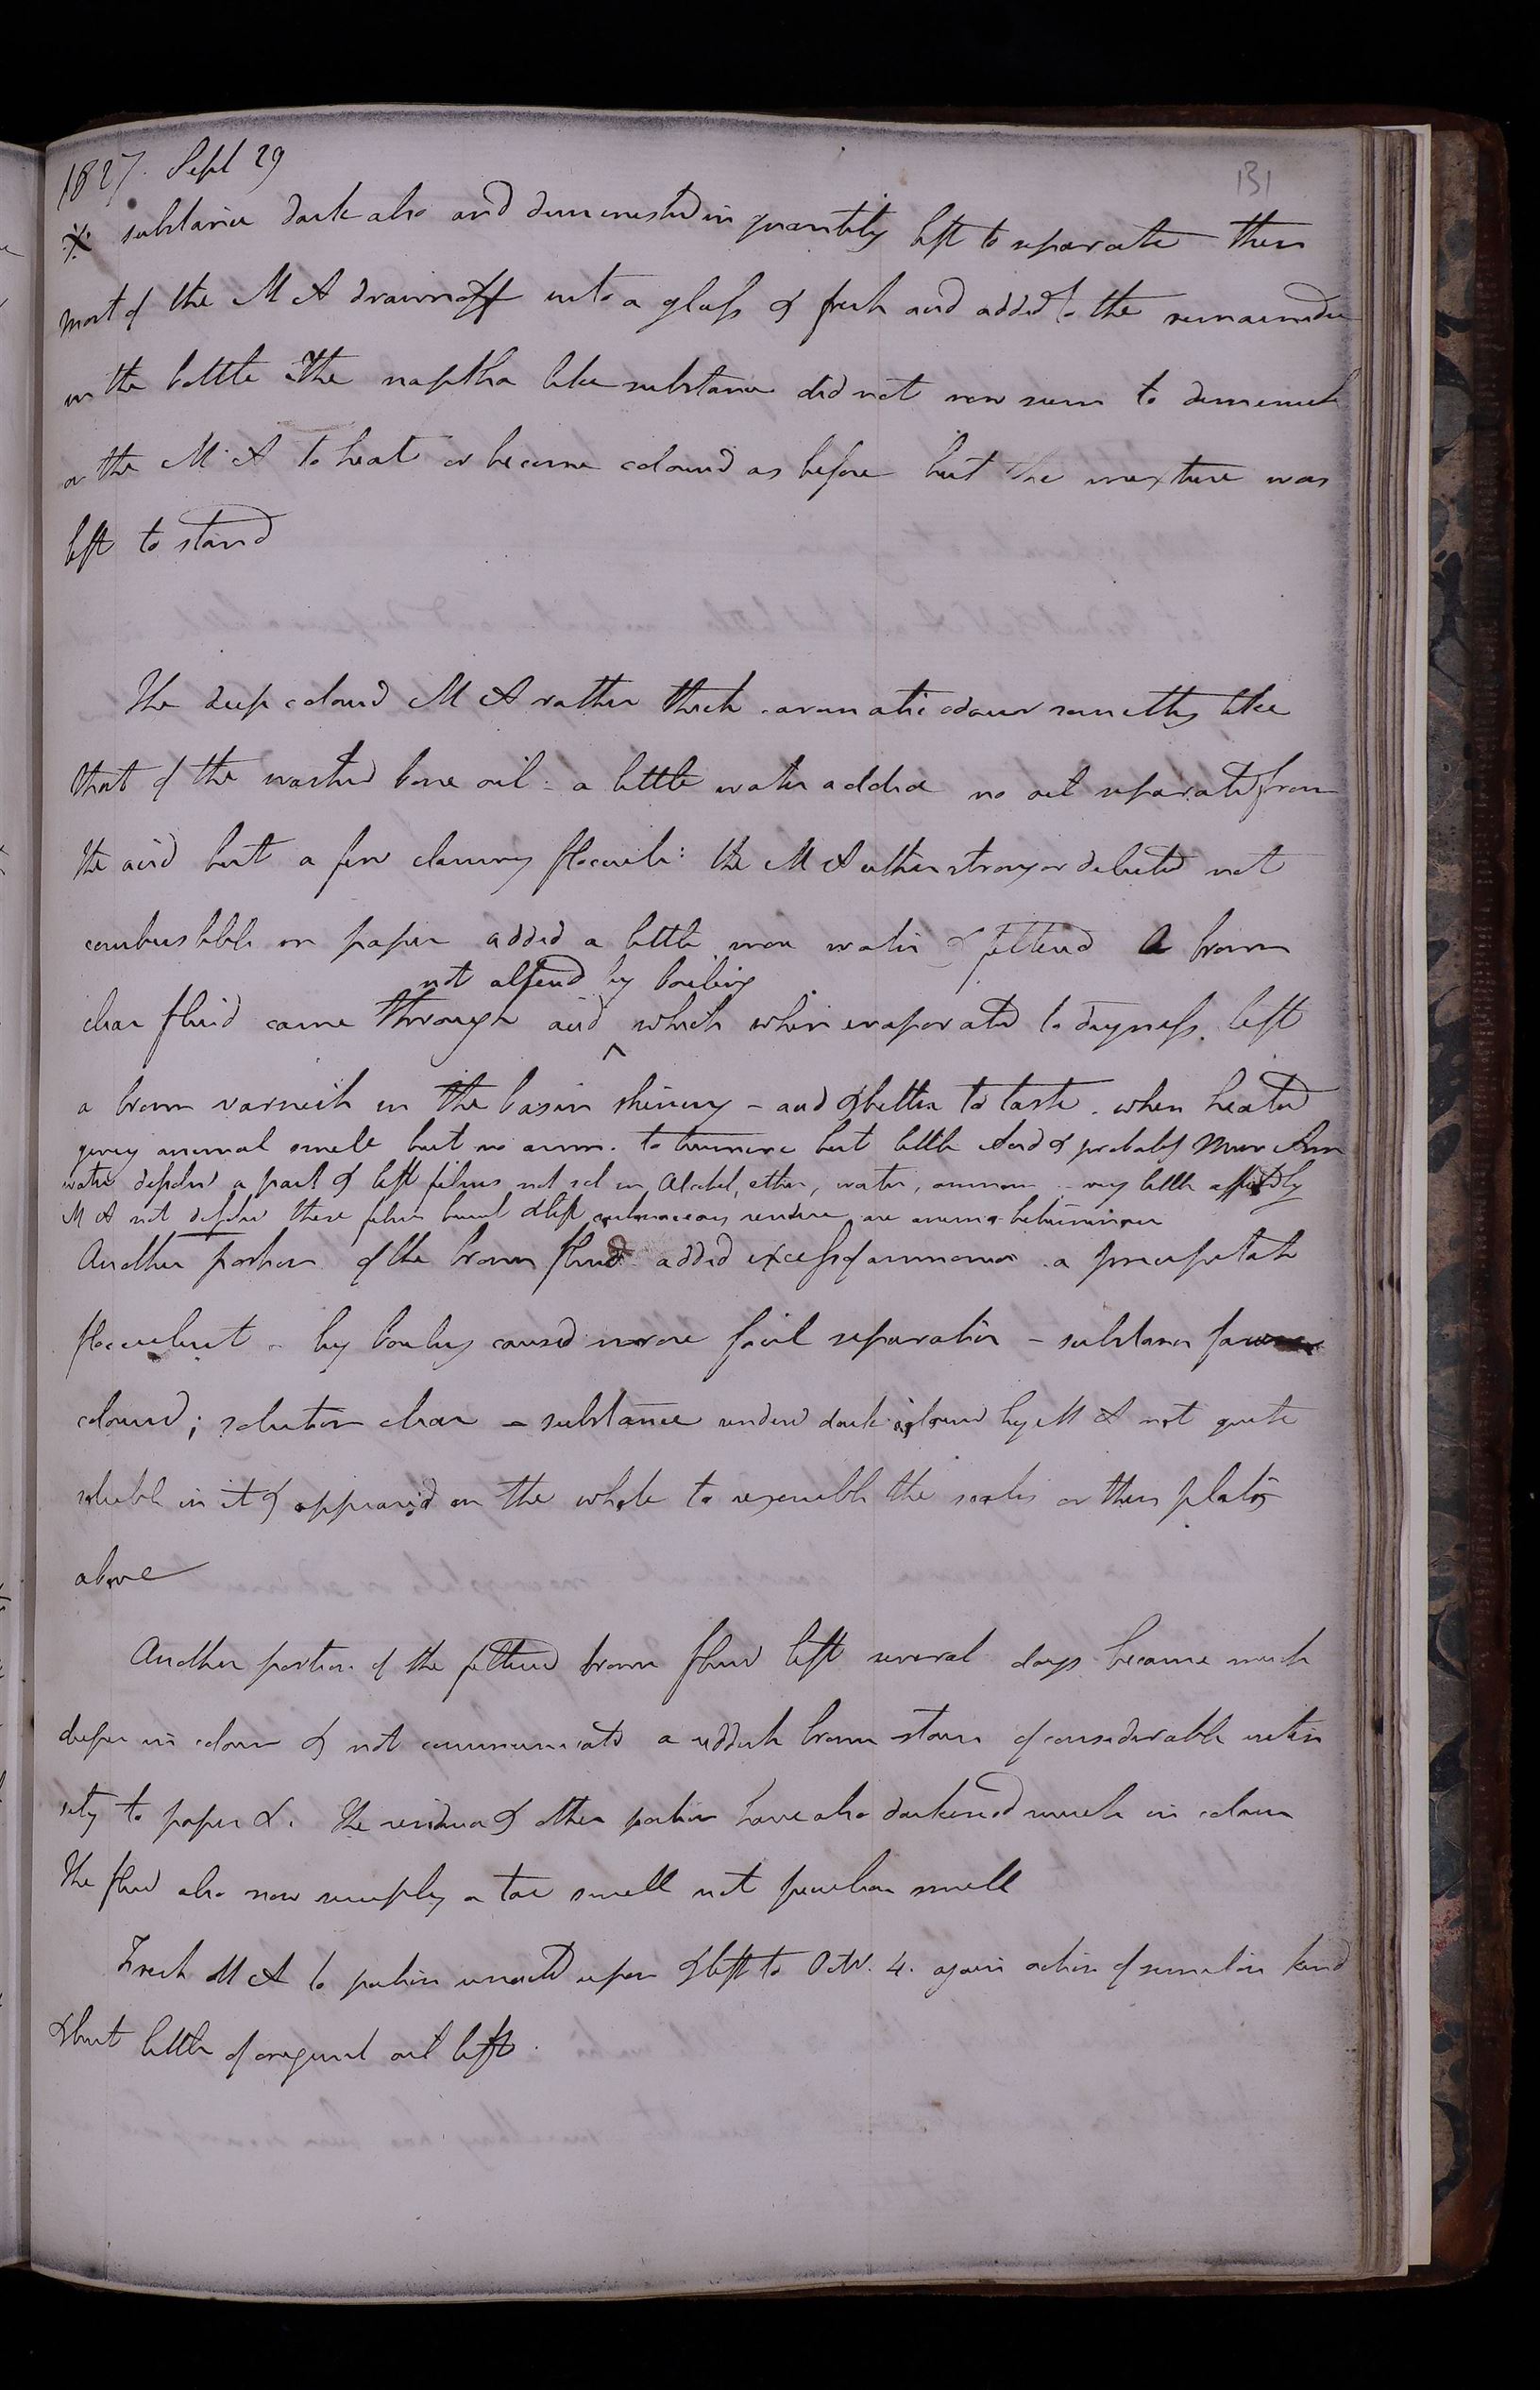 131
1827. Sept 29
⁒ substance dark also and diminished in quantity left to separate then
most of the M A drawn off into a glass & fresh acid added to the remainder
in the bottle The naptha like substance did not now seem to diminish
or the M A to heat or become coloured as before but the mixture was
left to stand
The deep coloured M A rather thick aromatic odour something like
that of the washed bone oil - a little water added no oil separated from
the acid but a few flocculi: the M A either strong or diluted not
combustible on paper added a little more water & filtered A brown
not altered by boiling
clear fluid came through acid ^ which when evaporated to dryness left
a brown varnish in the basin shining - acid & bitter to taste. when heated
giving animal smell but no amm. to turmeric but little Acid & probably Mur Amm
water dissolved a part & left films not sol in Alcohol, ether, water, ammon - very little affected by
M A not dissolved these films burnt & left carbonaceous residue are animo-bituminous
Another portion of the brown fluid added excess of ammonia a precipitate
flocculent - by boiling caused more facil separation - substance fawn
coloured; solution clear - substance rendered dark coloured by M A not quite
soluble in it & appeared on the whole to resemble the scales or thin plates
above
Another portion of the filtered brown fluid left several days became much
deeper in colour & communicated a reddish brown stain of considerable inten
sity to paper &. The residua & other portion have also darkened much in colour
The fluid also now simply a tar smell not peculiar smell
Fresh M A to portion unacted upon & left to Octr. 4. again action of similar kind
& but little of original oil left.